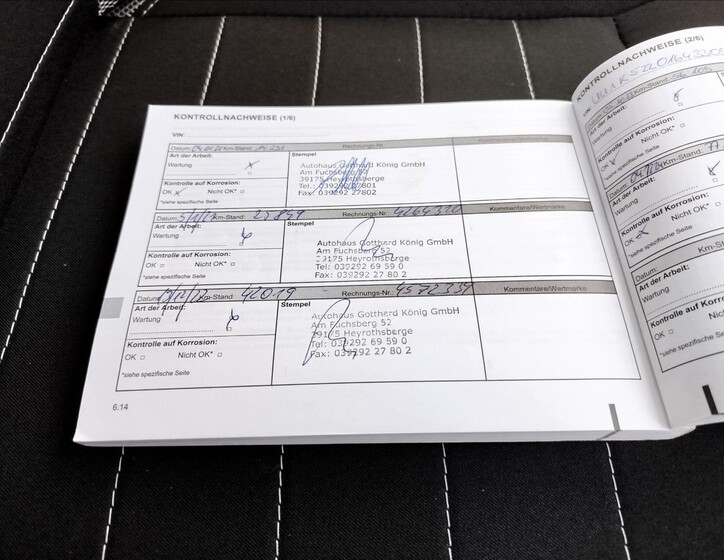 KONTROLLNACHWEISE (1/6)
VIN:
Datum: Km-Stand: Rechnungs-Nr.
Art der Arbeit:
Wartung
Kontrolle auf Korrosion:
OK Nicht OK*:
*siehe spezifische Seite
Stempel
Autohaus Gotthard König GmbH
Am Fuchsberg
39175 Heyrothsberge
Tel.:
Fax: 039292 27802
Datum: Km-Stand: 27859 Rechnungs-Nr. Kommentare/Wertmarke
Art der Arbeit:
Wartung
Kontrolle auf Korrosion:
OK Nicht OK*:
*siehe spezifische Seite
Stempel
Autohaus Gotthard König GmbH
Am Fuchsberg 52
39175 Heyrothsberge
Tel: 039292 69 59 0
Fax: 039292 27 80 2
Datum: Km-Stand: 42019 Rechnungs-Nr. Kommentare/Wertmarke
Art der Arbeit:
Wartung
Kontrolle auf Korrosion:
OK Nicht OK*:
*siehe spezifische Seite
Stempel
Autohaus Gotthard König GmbH
Am Fuchsberg 52
39175 Heyrothsberge
Tel: 039292 69 59 0
Fax: 039292 27 80 2
6.14
KONTROLLNACHWEISE (2/6)
VIN:
Km-Stand:
Art der Arbeit:
Wartung
Kontrolle auf Korrosion:
OK Nicht OK*:
*siehe spezifische Seite
Datum: Km-Stand: 77
Art der Arbeit:
Wartung
Kontrolle auf Korrosion:
OK Nicht OK*:
*siehe spezifische Seite
Datum: Km-S
Art der Arbeit:
Wartung
Kontrolle auf Korros
OK Nicht O
*siehe spezifische